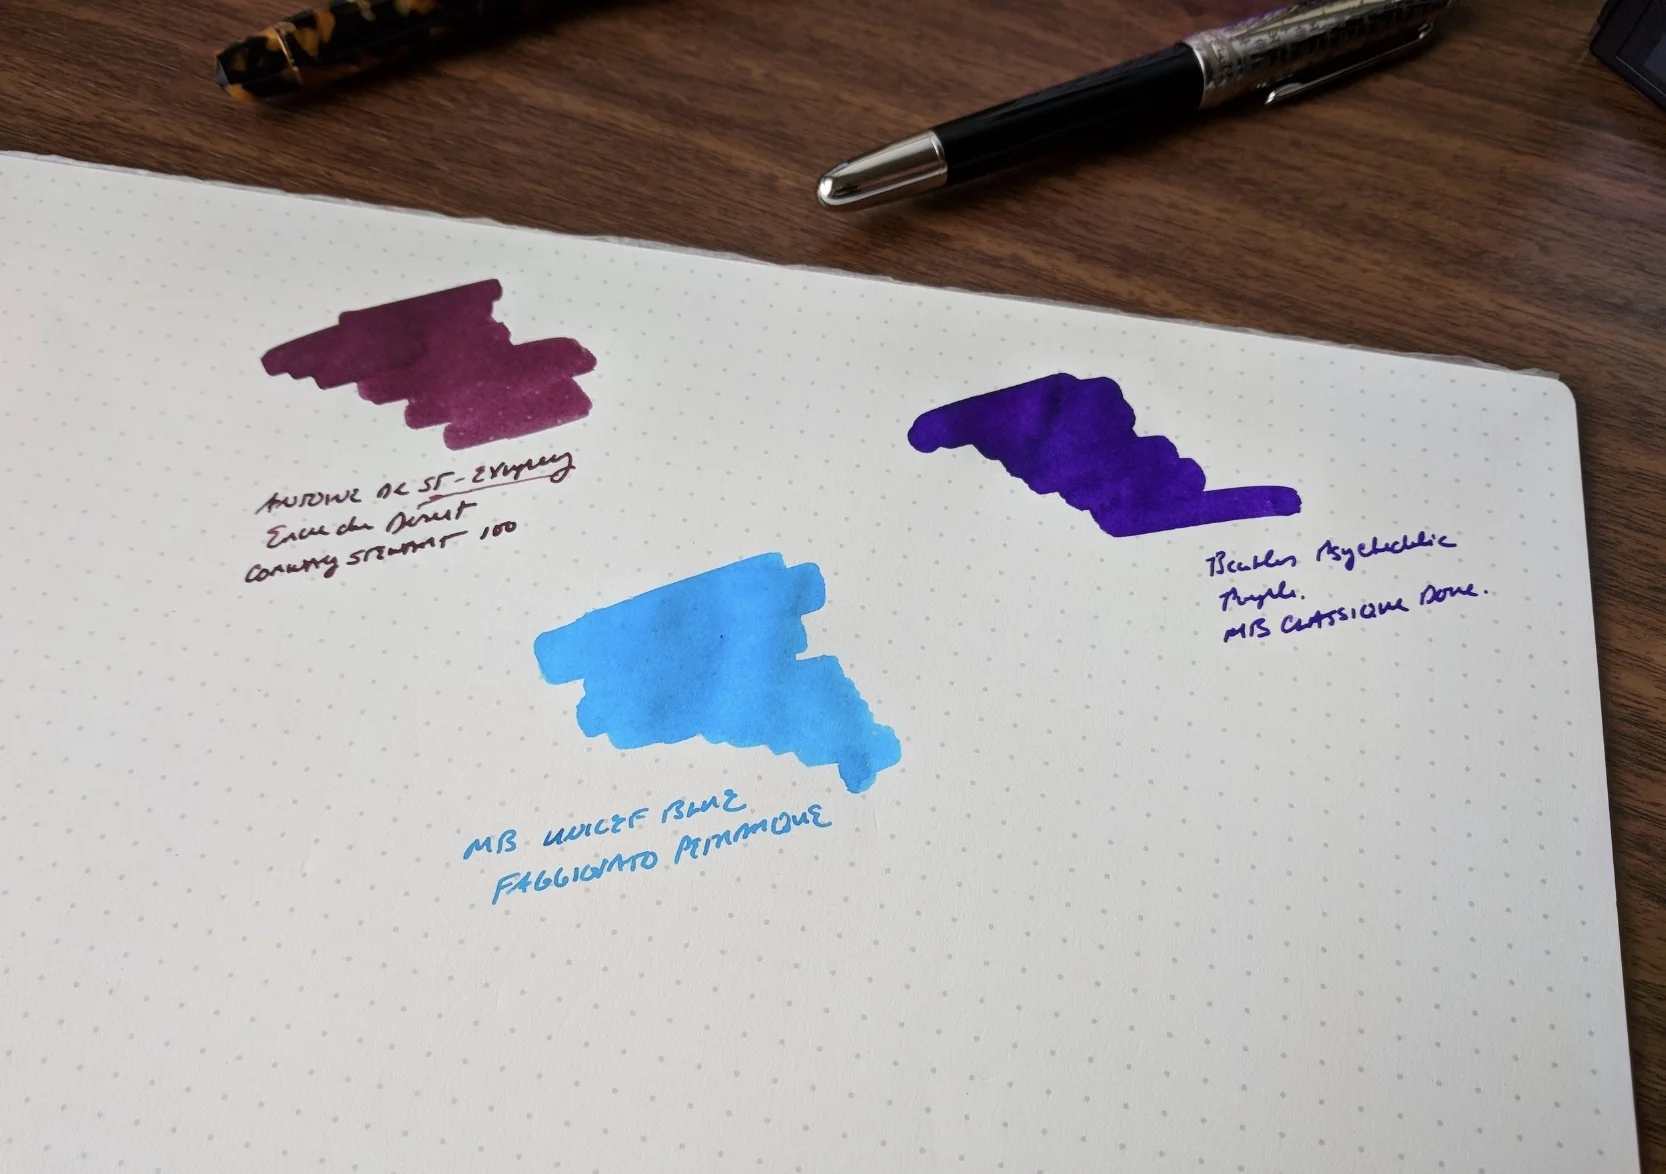 ANTOINE DE ST-EXUPERY
Encre du Désert
CONWAY STEWART 100
Beatles Psychedelic
Purple.
MB CLASSIQUE DOUE.
MB UNICEF BLUE
FAGGIONATO PETRARQUE